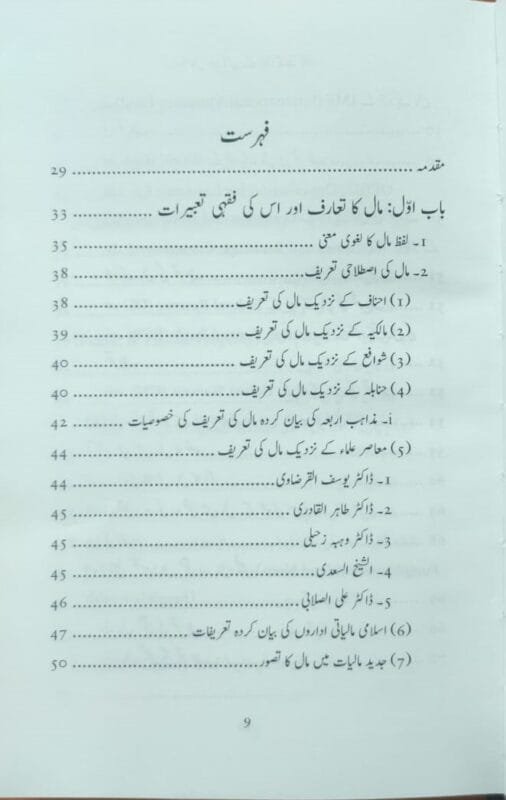 فہرست
مقدمہ ........................................ 29
باب اوّل: مال کا تعارف اور اس کی فقہی تعبیرات ................ 33
1۔ لفظ مال کا لغوی معنی ........................................ 35
2۔ مال کی اصطلاحی تعریف ........................................ 38
(1) احناف کے نزدیک مال کی تعریف ........................ 38
(2) مالکیہ کے نزدیک مال کی تعریف ........................ 39
(3) شوافع کے نزدیک مال کی تعریف ........................ 40
(4) حنابلہ کے نزدیک مال کی تعریف ........................ 40
i۔ مذاہب اربعہ کی بیان کردہ مال کی تعریف کی خصوصیات ............ 42
(5) معاصر علماء کے نزدیک مال کی تعریف ........................ 44
1۔ ڈاکٹر یوسف القرضاوی ........................................ 44
2۔ ڈاکٹر طاہر القادری ........................................ 45
3۔ ڈاکٹر وہبہ زحیلی ........................................ 45
4۔ الشیخ السعدی ........................................ 45
5۔ ڈاکٹر علی الصلابی ........................................ 46
(6) اسلامی مالیاتی اداروں کی بیان کردہ تعریفات ................ 47
(7) جدید مالیات میں مال کا تصور ................................ 50
9